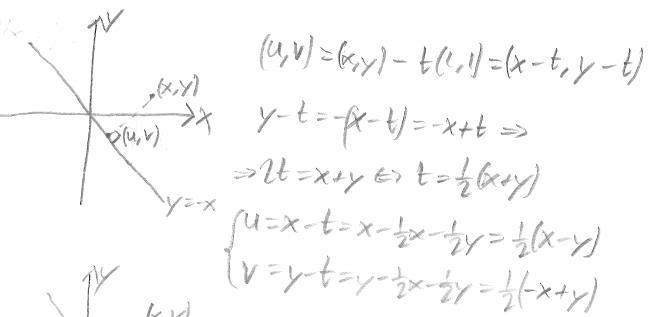 y
(x,y)
x
(u,v)
y=-x
(u,v)=(x,y)-t(1,1)=(x-t,y-t)
y-t=-(x-t)=-x+t⇒
⇒2t=x+y⇔t=½(x+y)
{u=x-t=x-½x-½y=½(x-y)
v=y-t=y-½x-½y=½(-x+y)
y